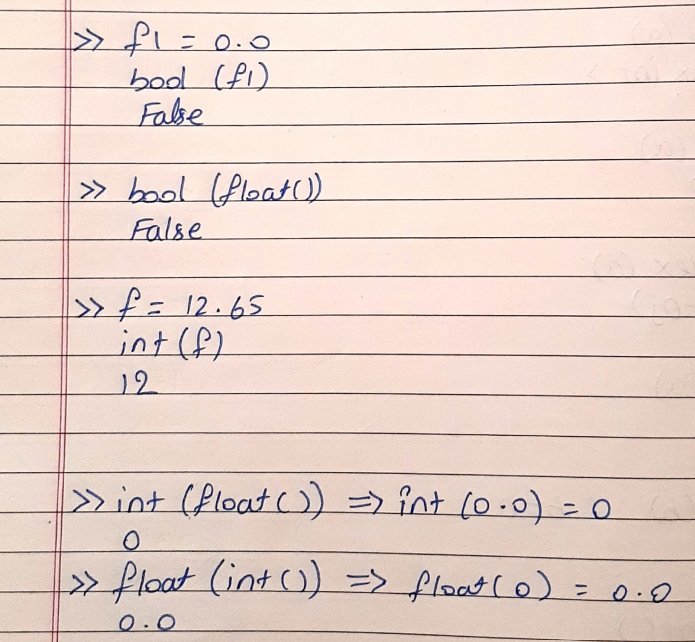 >> f1 = 0.0
bool (f1)
False
>> bool (float())
False
>> f = 12.65
int (f)
12
>> int (float()) => int (0.0) = 0
0
>> float (int()) => float(0) = 0.0
0.0